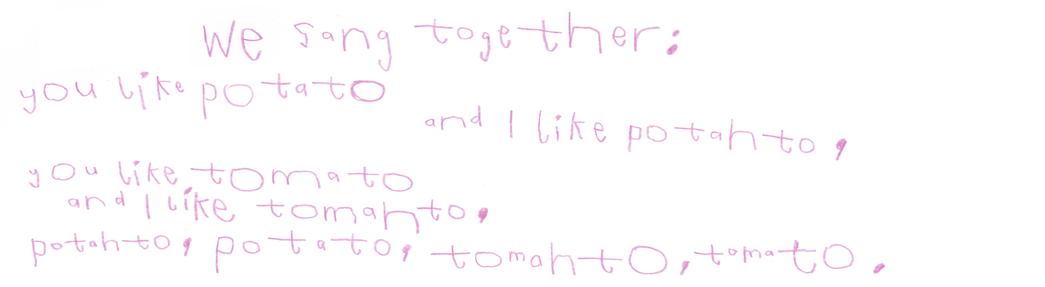 We sang together:
you like potato
and I like potahto,
you like tomato
and I like tomahto,
potahto, potato, tomahto, tomato.